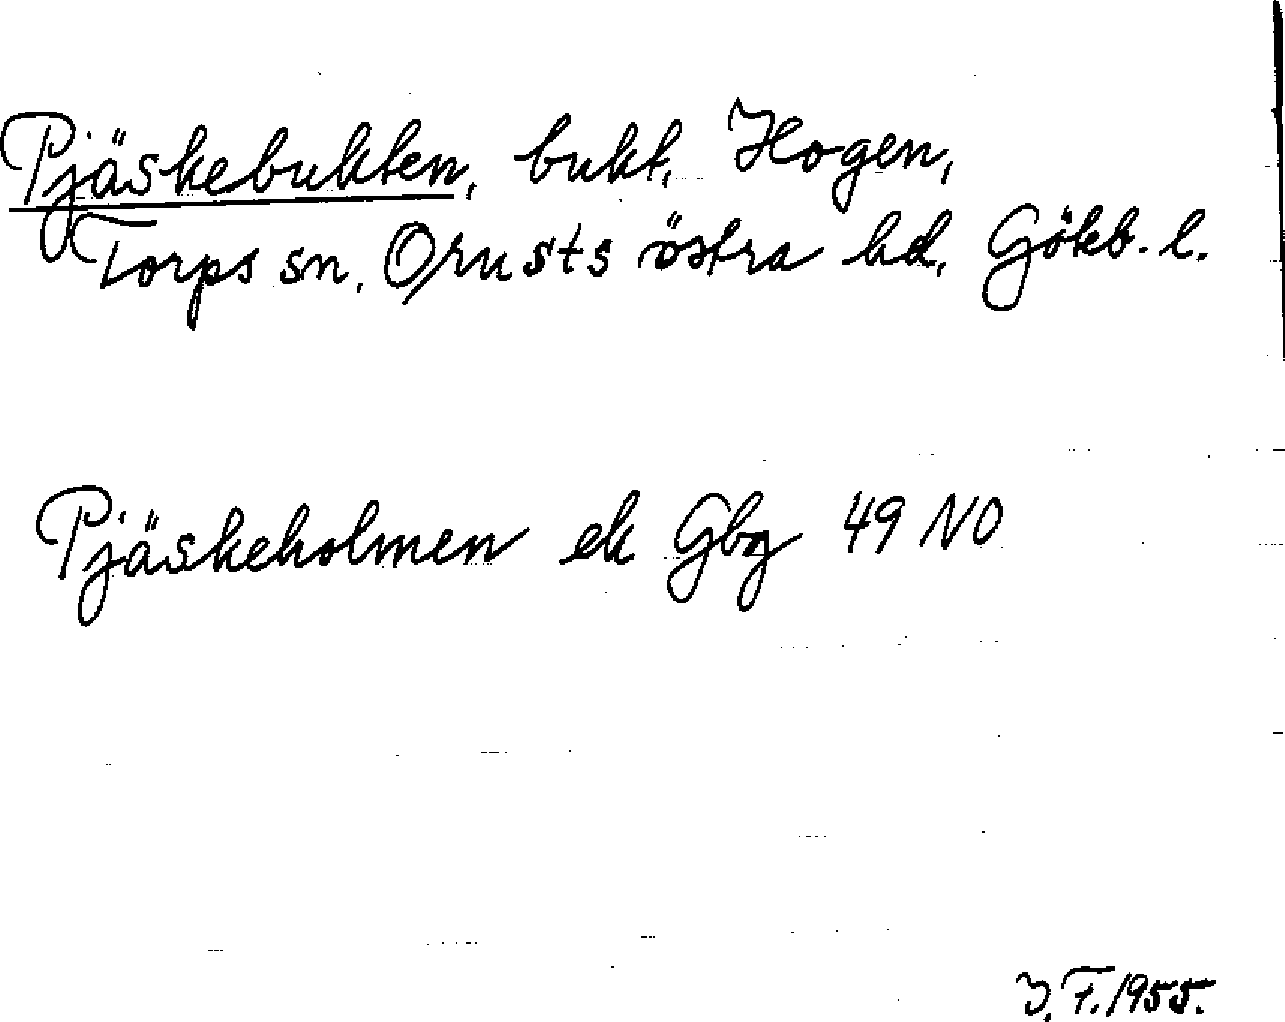 Pjäskebukten, bukt, Hogen,
Torps sn, Orusts östra hd, Göteb. l.
Pjäskeholmen ek Gbg 49 NO
J. F. 1955.